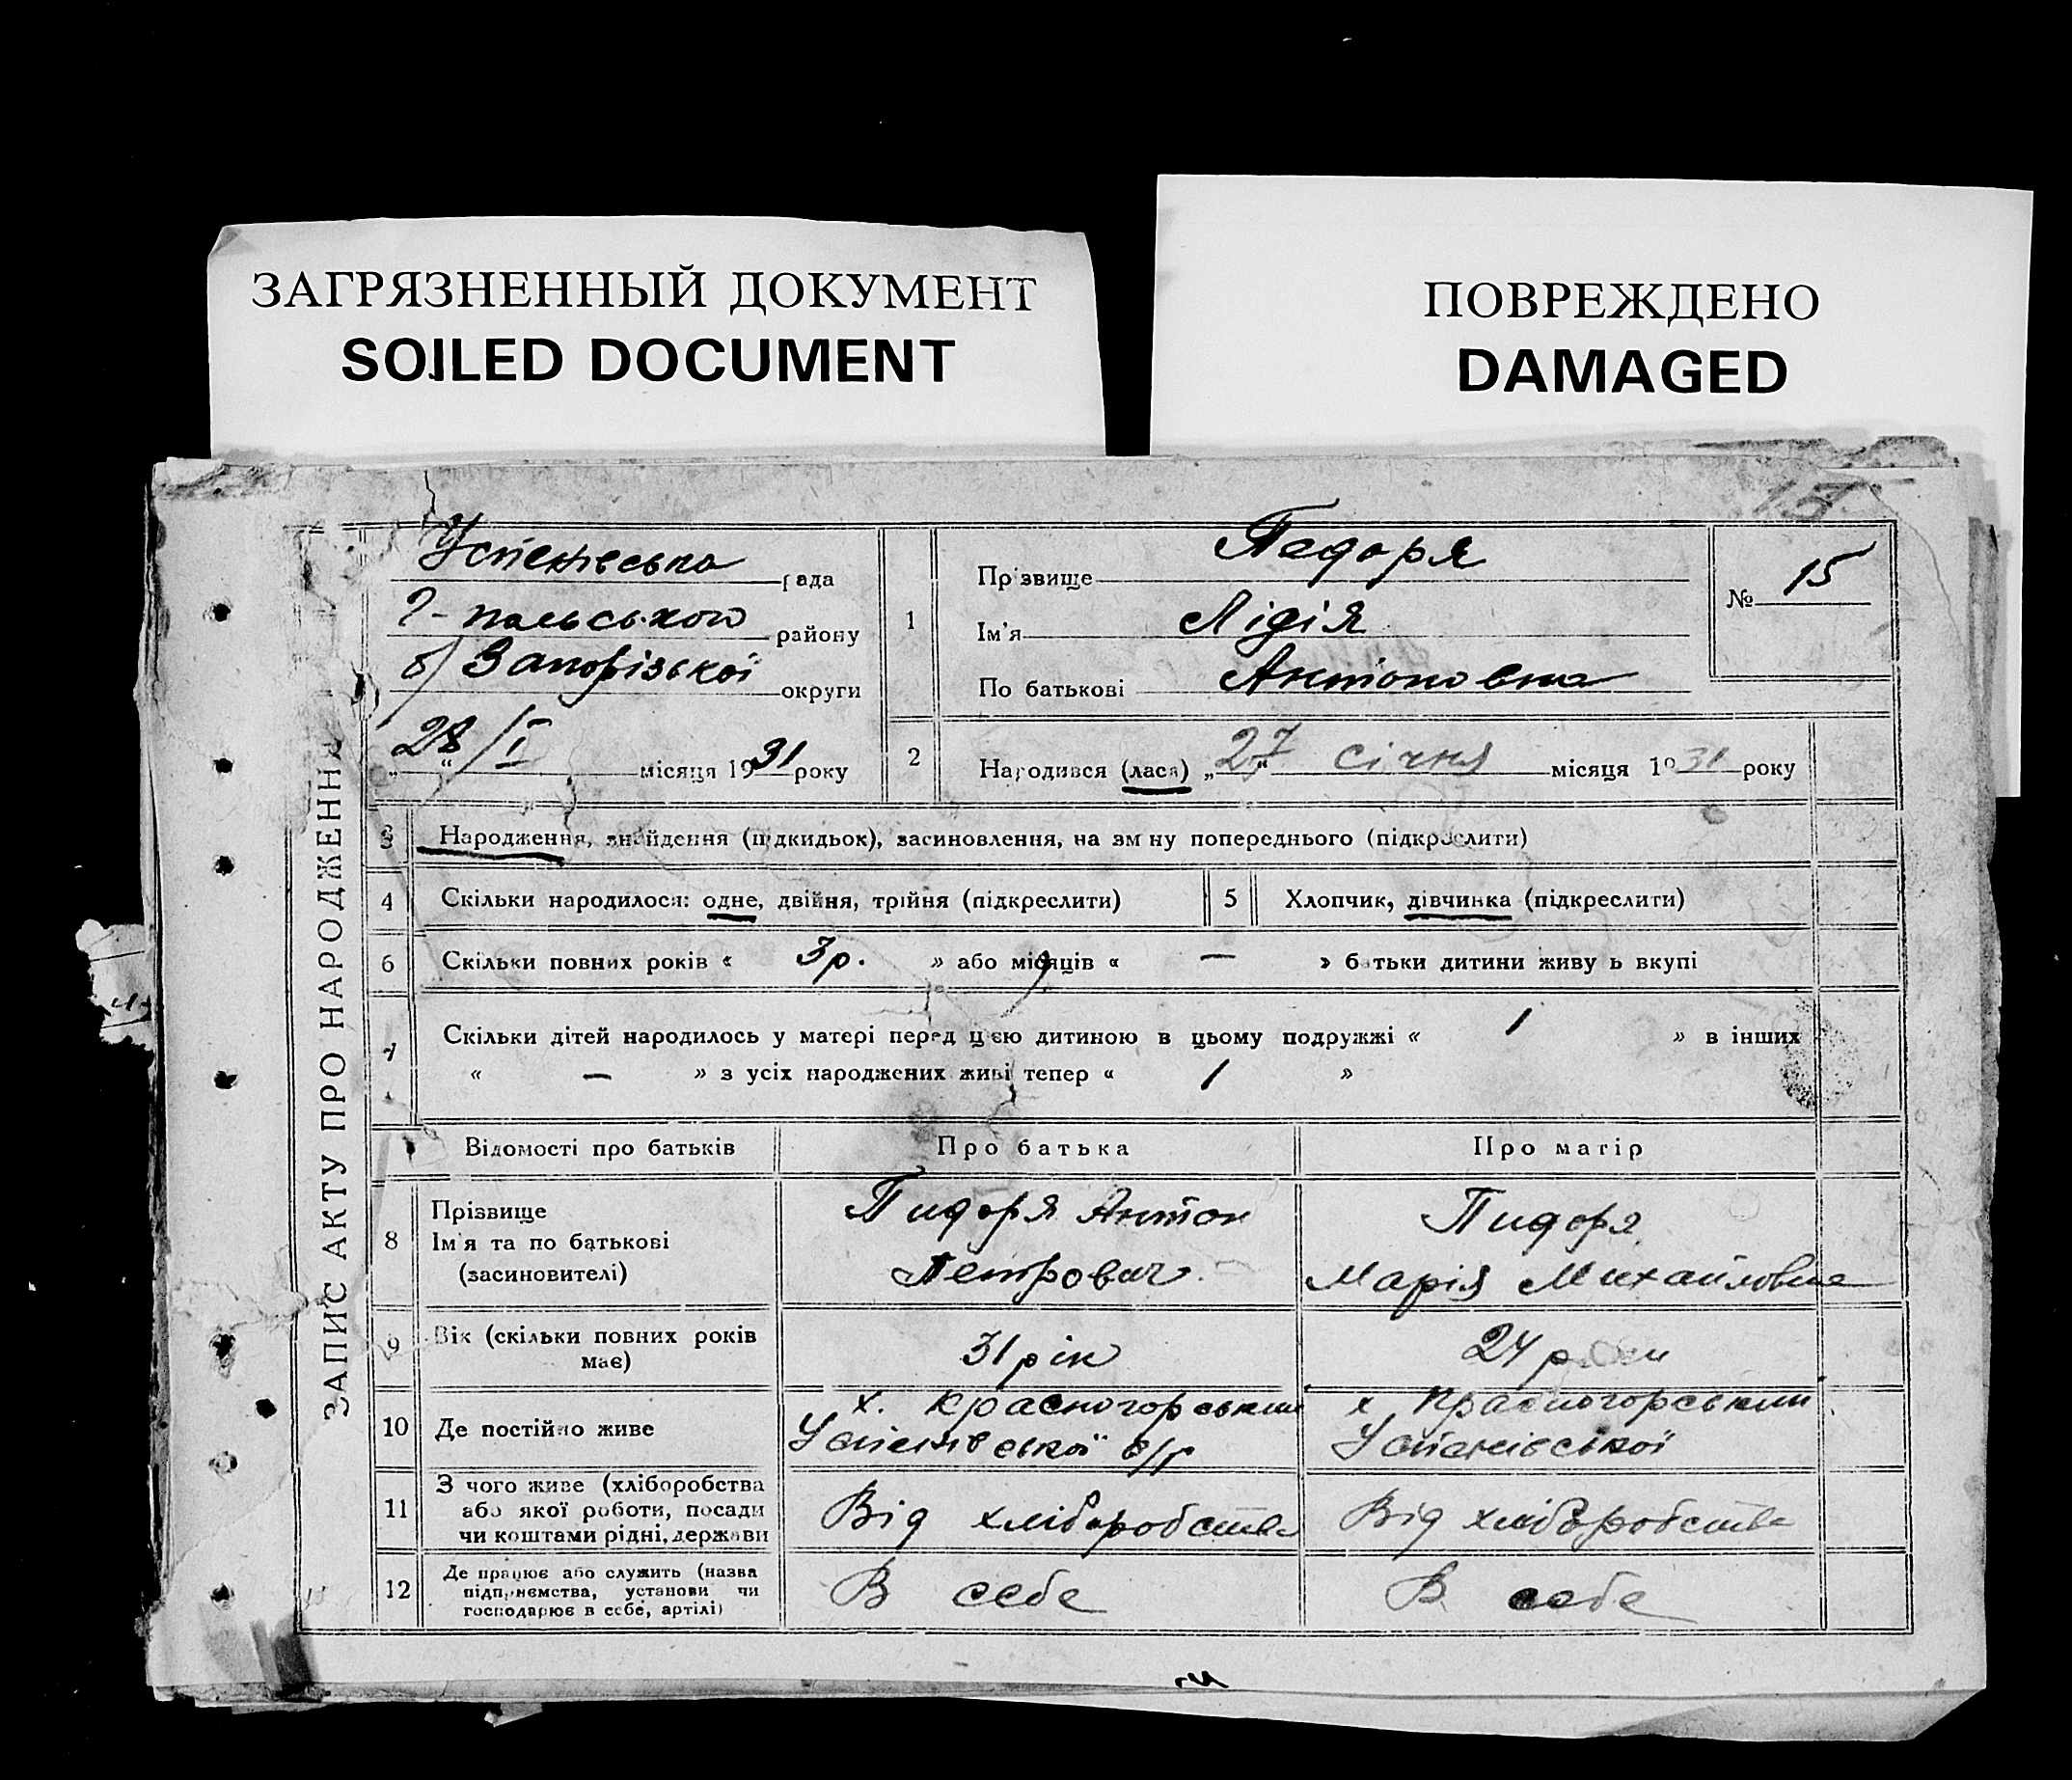 ЗАГРЯЗНЕННЫЙ ДОКУМЕНТ
SOILED DOCUMENT
ПОВРЕЖДЕНО
DAMAGED
ЗАПИС АКТУ ПРО НАРОДЖЕННЯ
Успенівська рада
Г-польського району
б/ Запорізької округи
28/I місяця 1931 року
1
Прізвище Педоря
Ім'я Лідія
По батькові Антоновна
№ 15
2
Народився (лася) „27" січня місяця 1931 року
3 Народження, знайдення (підкидьок), засиновлення, на зміну попереднього (підкреслити)
4 Скільки народилося: одне, двійня, трійня (підкреслити)
5 Хлопчик, дівчинка (підкреслити)
6 Скільки повних років « 3р. » або місяців « — » батьки дитини живуть вкупі
7 Скільки дітей народилось у матері перед цією дитиною в цьому подружжі « 1 » в інших
« — » з усіх народжених живі тепер « 1 »
Відомості про батьків Про батька Про матір
8 Прізвище
Ім'я та по батькові
(засиновителі)
Пидоря Антон
Петрович
Пидоря
Марія Михайловна
9 Вік (скільки повних років
має)
31 рік
24 роки
10 Де постійно живе
х. Красногорський
Успенівської с/р
х Красногорський
Успенівської
11 З чого живе (хліборобства
або якої роботи, посади
чи коштами рідні, держави
Від хліборобства
Від хліборобства
12 Де працює або служить (назва
підприємства, установи чи
господарює в себе, артілі)
В себе
В себе